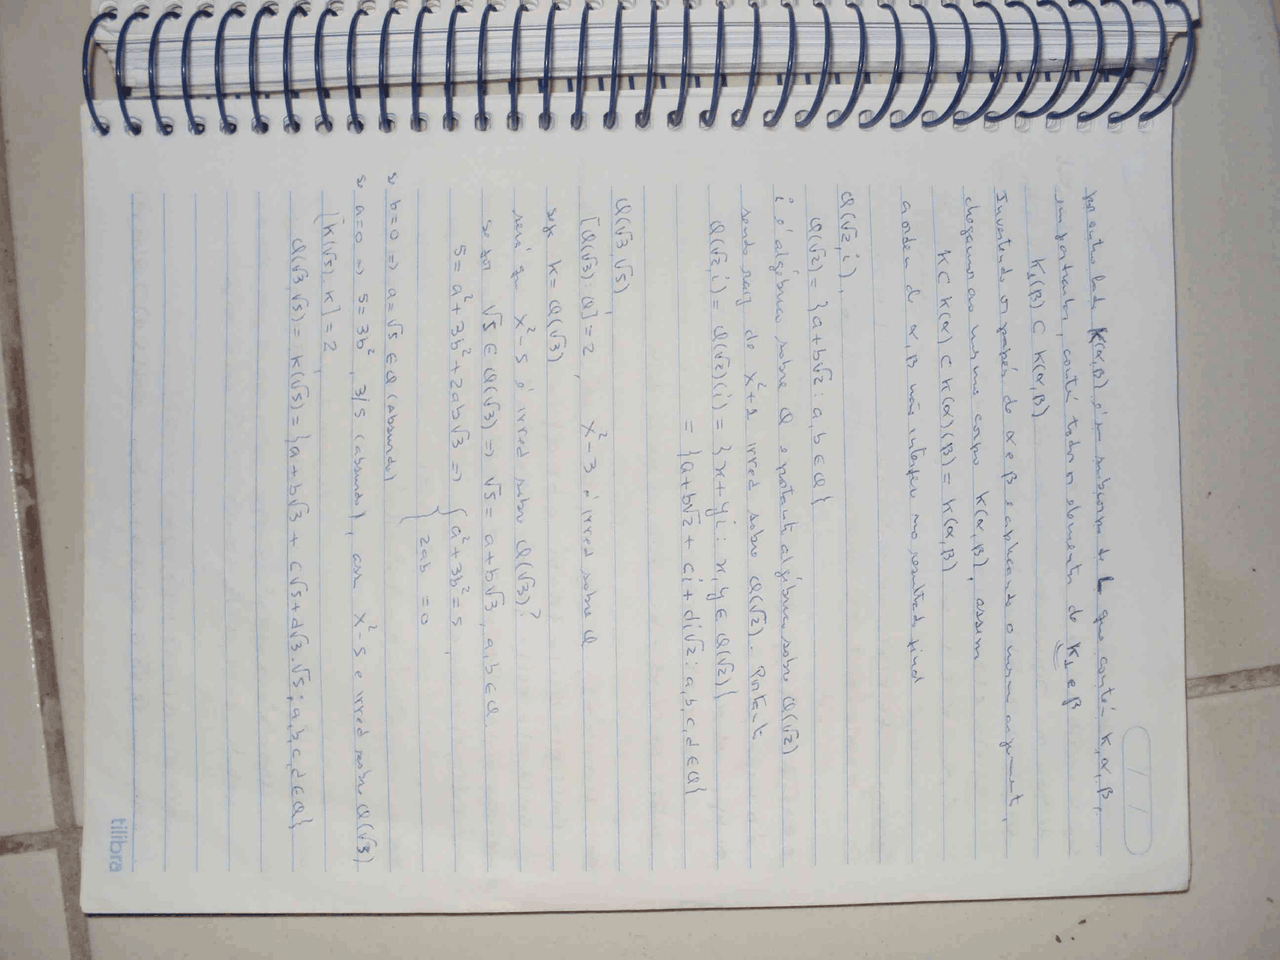 por outro lado K(α,β) é um subcorpo de L que contém K, α, β,
em particular, contém todos os elementos de K₁ e β
K₁(β) ⊂ K(α,β)
Invertendo os papéis de α e β e aplicando o mesmo argument,
chegamos ao mesmo corpo K(α,β), assim
K ⊂ K(α) ⊂ K(α)(β) = K(α,β)
a ordem d α, β não interfere no resultado final
Q(√2, i),
Q(√2) = {a+b√2 : a, b ∈ Q}
i é algébrico sobre Q e portant algébrico sobre Q(√2)
sendo raiz de x²+1 irred sobre Q(√2). Portant
Q(√2, i) = Q(√2)(i) = {x+yi : x, y ∈ Q(√2)}
= {a+b√2 + ci + di√2 : a, b, c, d ∈ Q}
Q(√3, √5),
[Q(√3) : Q] = 2, x² - 3 é irred sobre Q
seja K = Q(√3)
será que x² - 5 é irred sobre Q(√3)?
se for √5 ∈ Q(√3) => √5 = a + b√3, a, b ∈ Q
5 = a² + 3b² + 2ab√3 => { a² + 3b² = 5,
2ab = 0
se b=0 => a = √5 ∈ Q (absurdo)
se a=0 => 5 = 3b², 3/5 (absurdo), assim x² - 5 é irred sobre Q(√3)
[K(√5) : K] = 2,
Q(√3, √5) = K(√5) = {a + b√3 + c√5 + d√3.√5 ; a, b, c, d ∈ Q}
tilibra